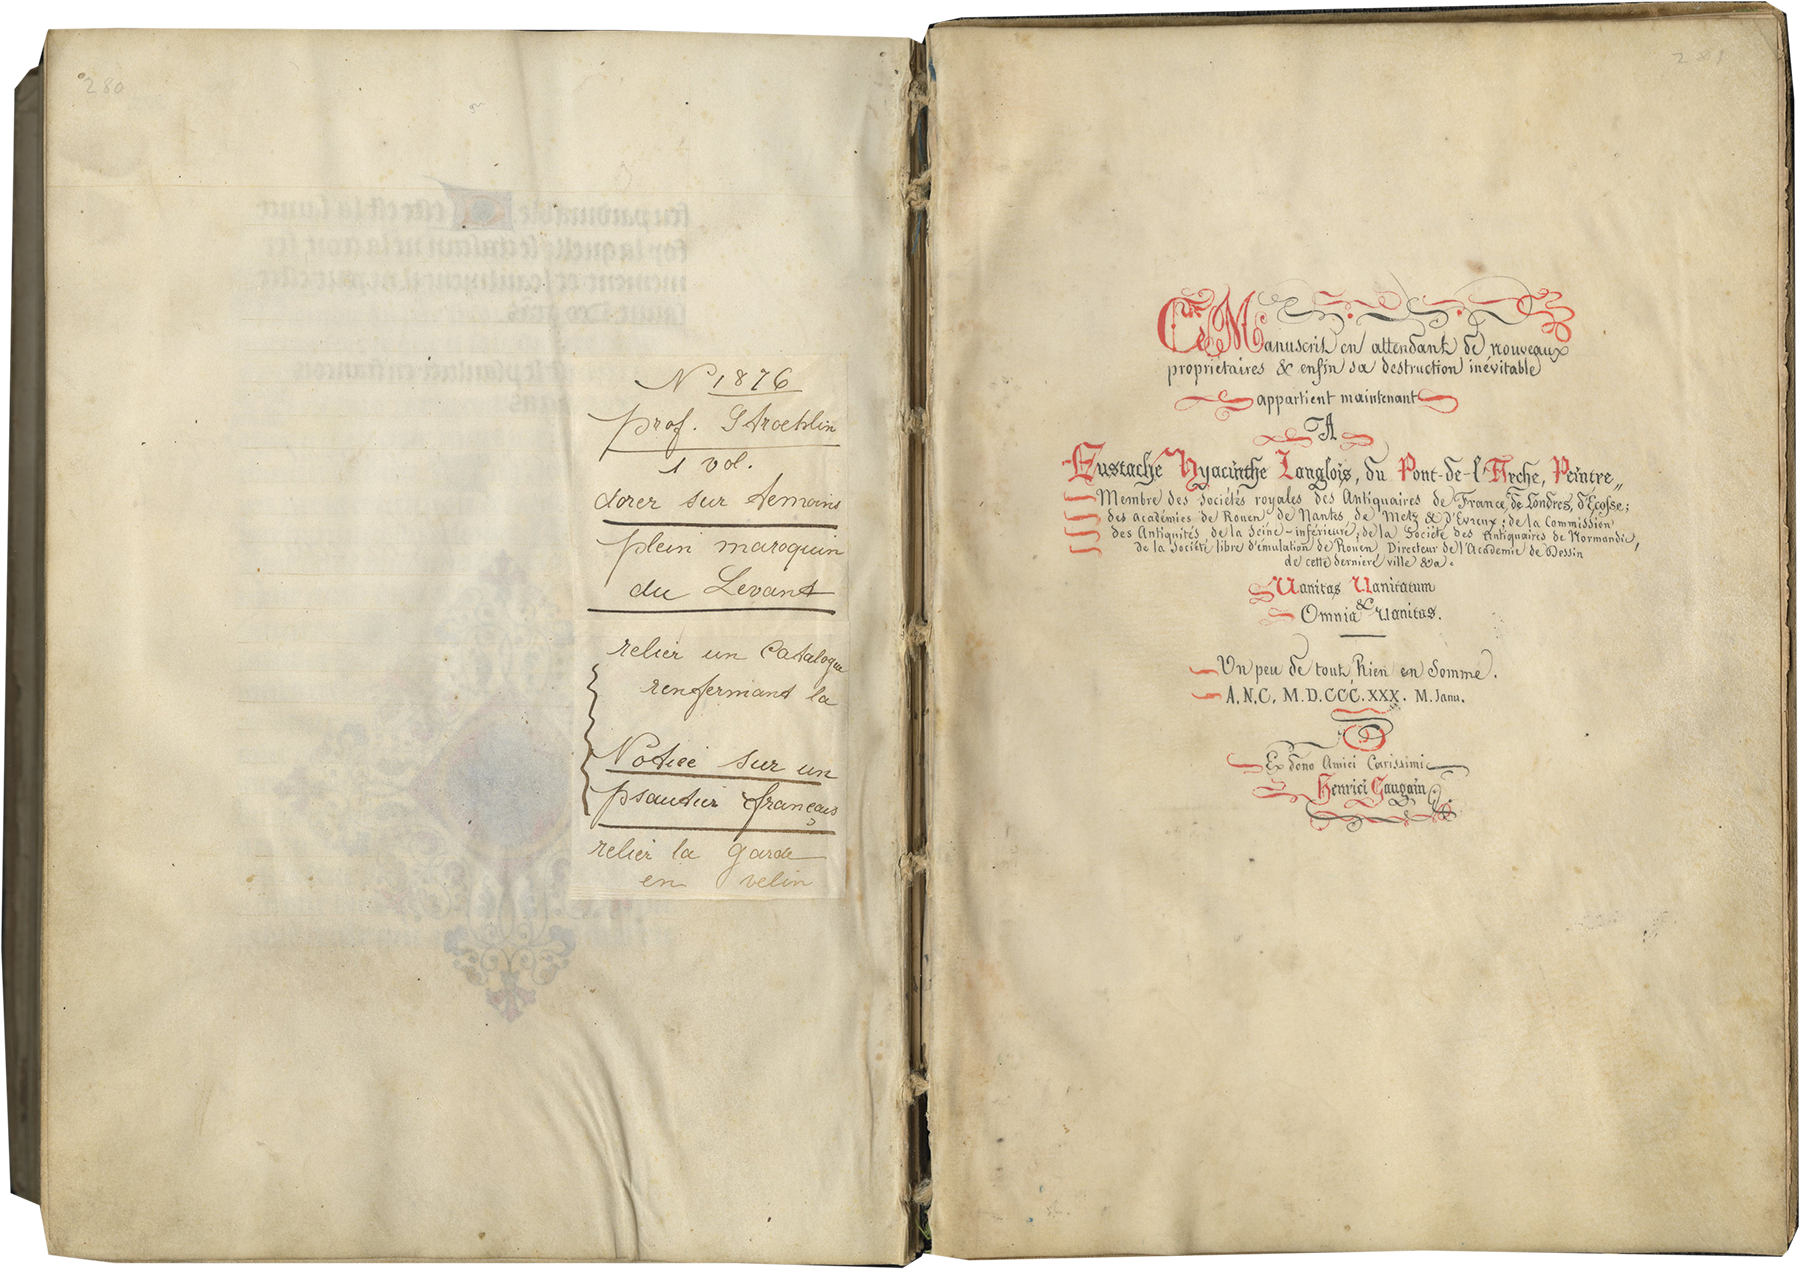 280
N 1876
prof. Stroehlin
1 vol.
dorer sur temoins
plein maroquin
du Levant
relier un Catalogue
renfermant la
Notice sur un
psautier français
relier la garde
en velin
281
Ce Manuscrit en attendant de nouveaux
proprietaires & enfin sa destruction inévitable
appartient maintenant
A
Eustache Hyacinthe Langlois, du Pont-de-l'Arche, Peintre,,
Membre des Sociétés royales des Antiquaires de France, de Londres, d'Ecosse;
des Académies de Rouen, de Nantes de Metz & d'Evreux; de la Commission
des Antiquités de la Seine-inférieure; de la Société des Antiquaires de Normandie,
de la Société libre d'émulation de Rouen, Directeur de l'Académie de Dessin
de cette derniere ville &a.
Vanitas Vanitatum
& Omnia Vanitas.
Un peu de tout Rien en Somme.
A.N.C. M.D.CCC.XXX. M. Janu.
Ex dono Amici Carissimi
Henrici Gaugain